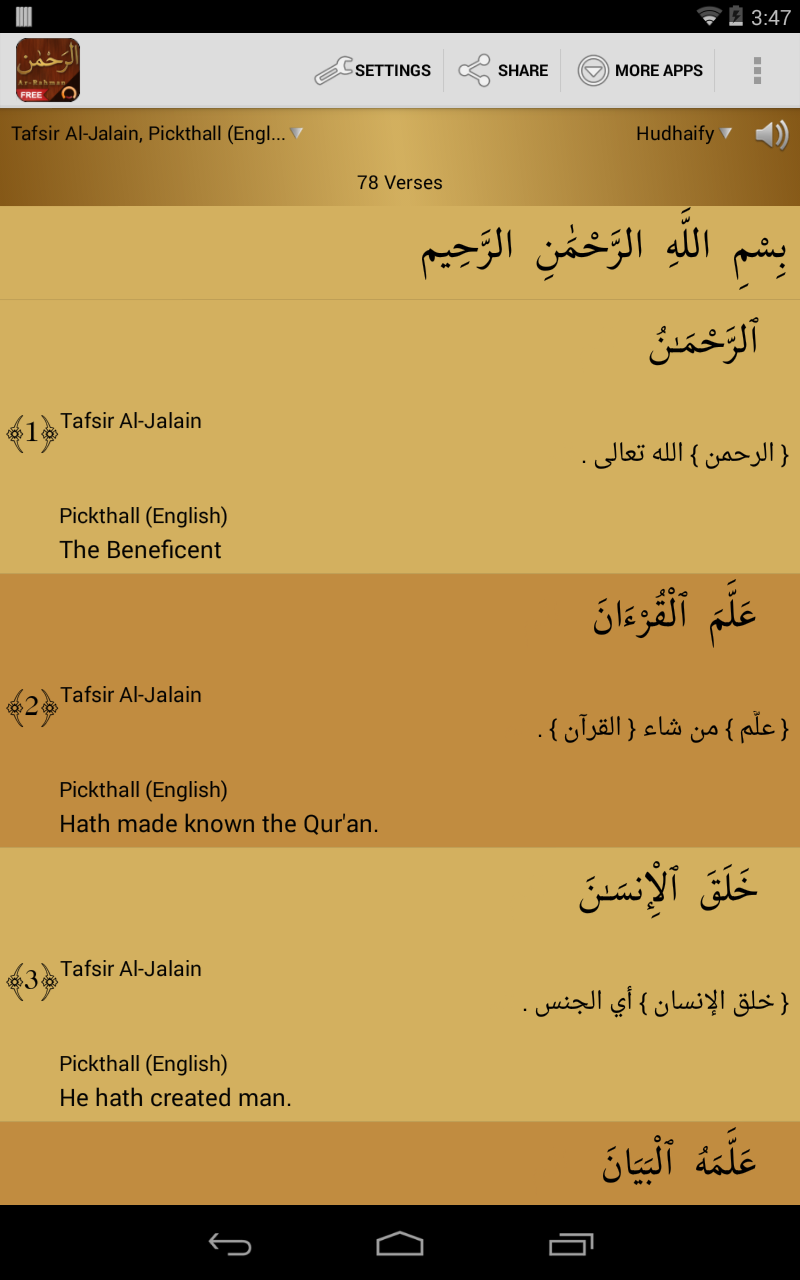 3:47
الرَّحْمٰن
Ar-Rahman
FREE
SETTINGS
SHARE
MORE APPS
Tafsir Al-Jalain, Pickthall (Engl...
Hudhaify
78 Verses
بِسْمِ اللَّهِ الرَّحْمَٰنِ الرَّحِيم
ٱلرَّحْمَـٰنُ
1
Tafsir Al-Jalain
{ الرحمن } الله تعالى .
Pickthall (English)
The Beneficent
عَلَّمَ ٱلْقُرْءَانَ
2
Tafsir Al-Jalain
{ علّم } من شاء { القرآن } .
Pickthall (English)
Hath made known the Qur'an.
خَلَقَ ٱلْإِنسَـٰنَ
3
Tafsir Al-Jalain
{ خلق الإنسان } أي الجنس .
Pickthall (English)
He hath created man.
عَلَّمَهُ ٱلْبَيَانَ